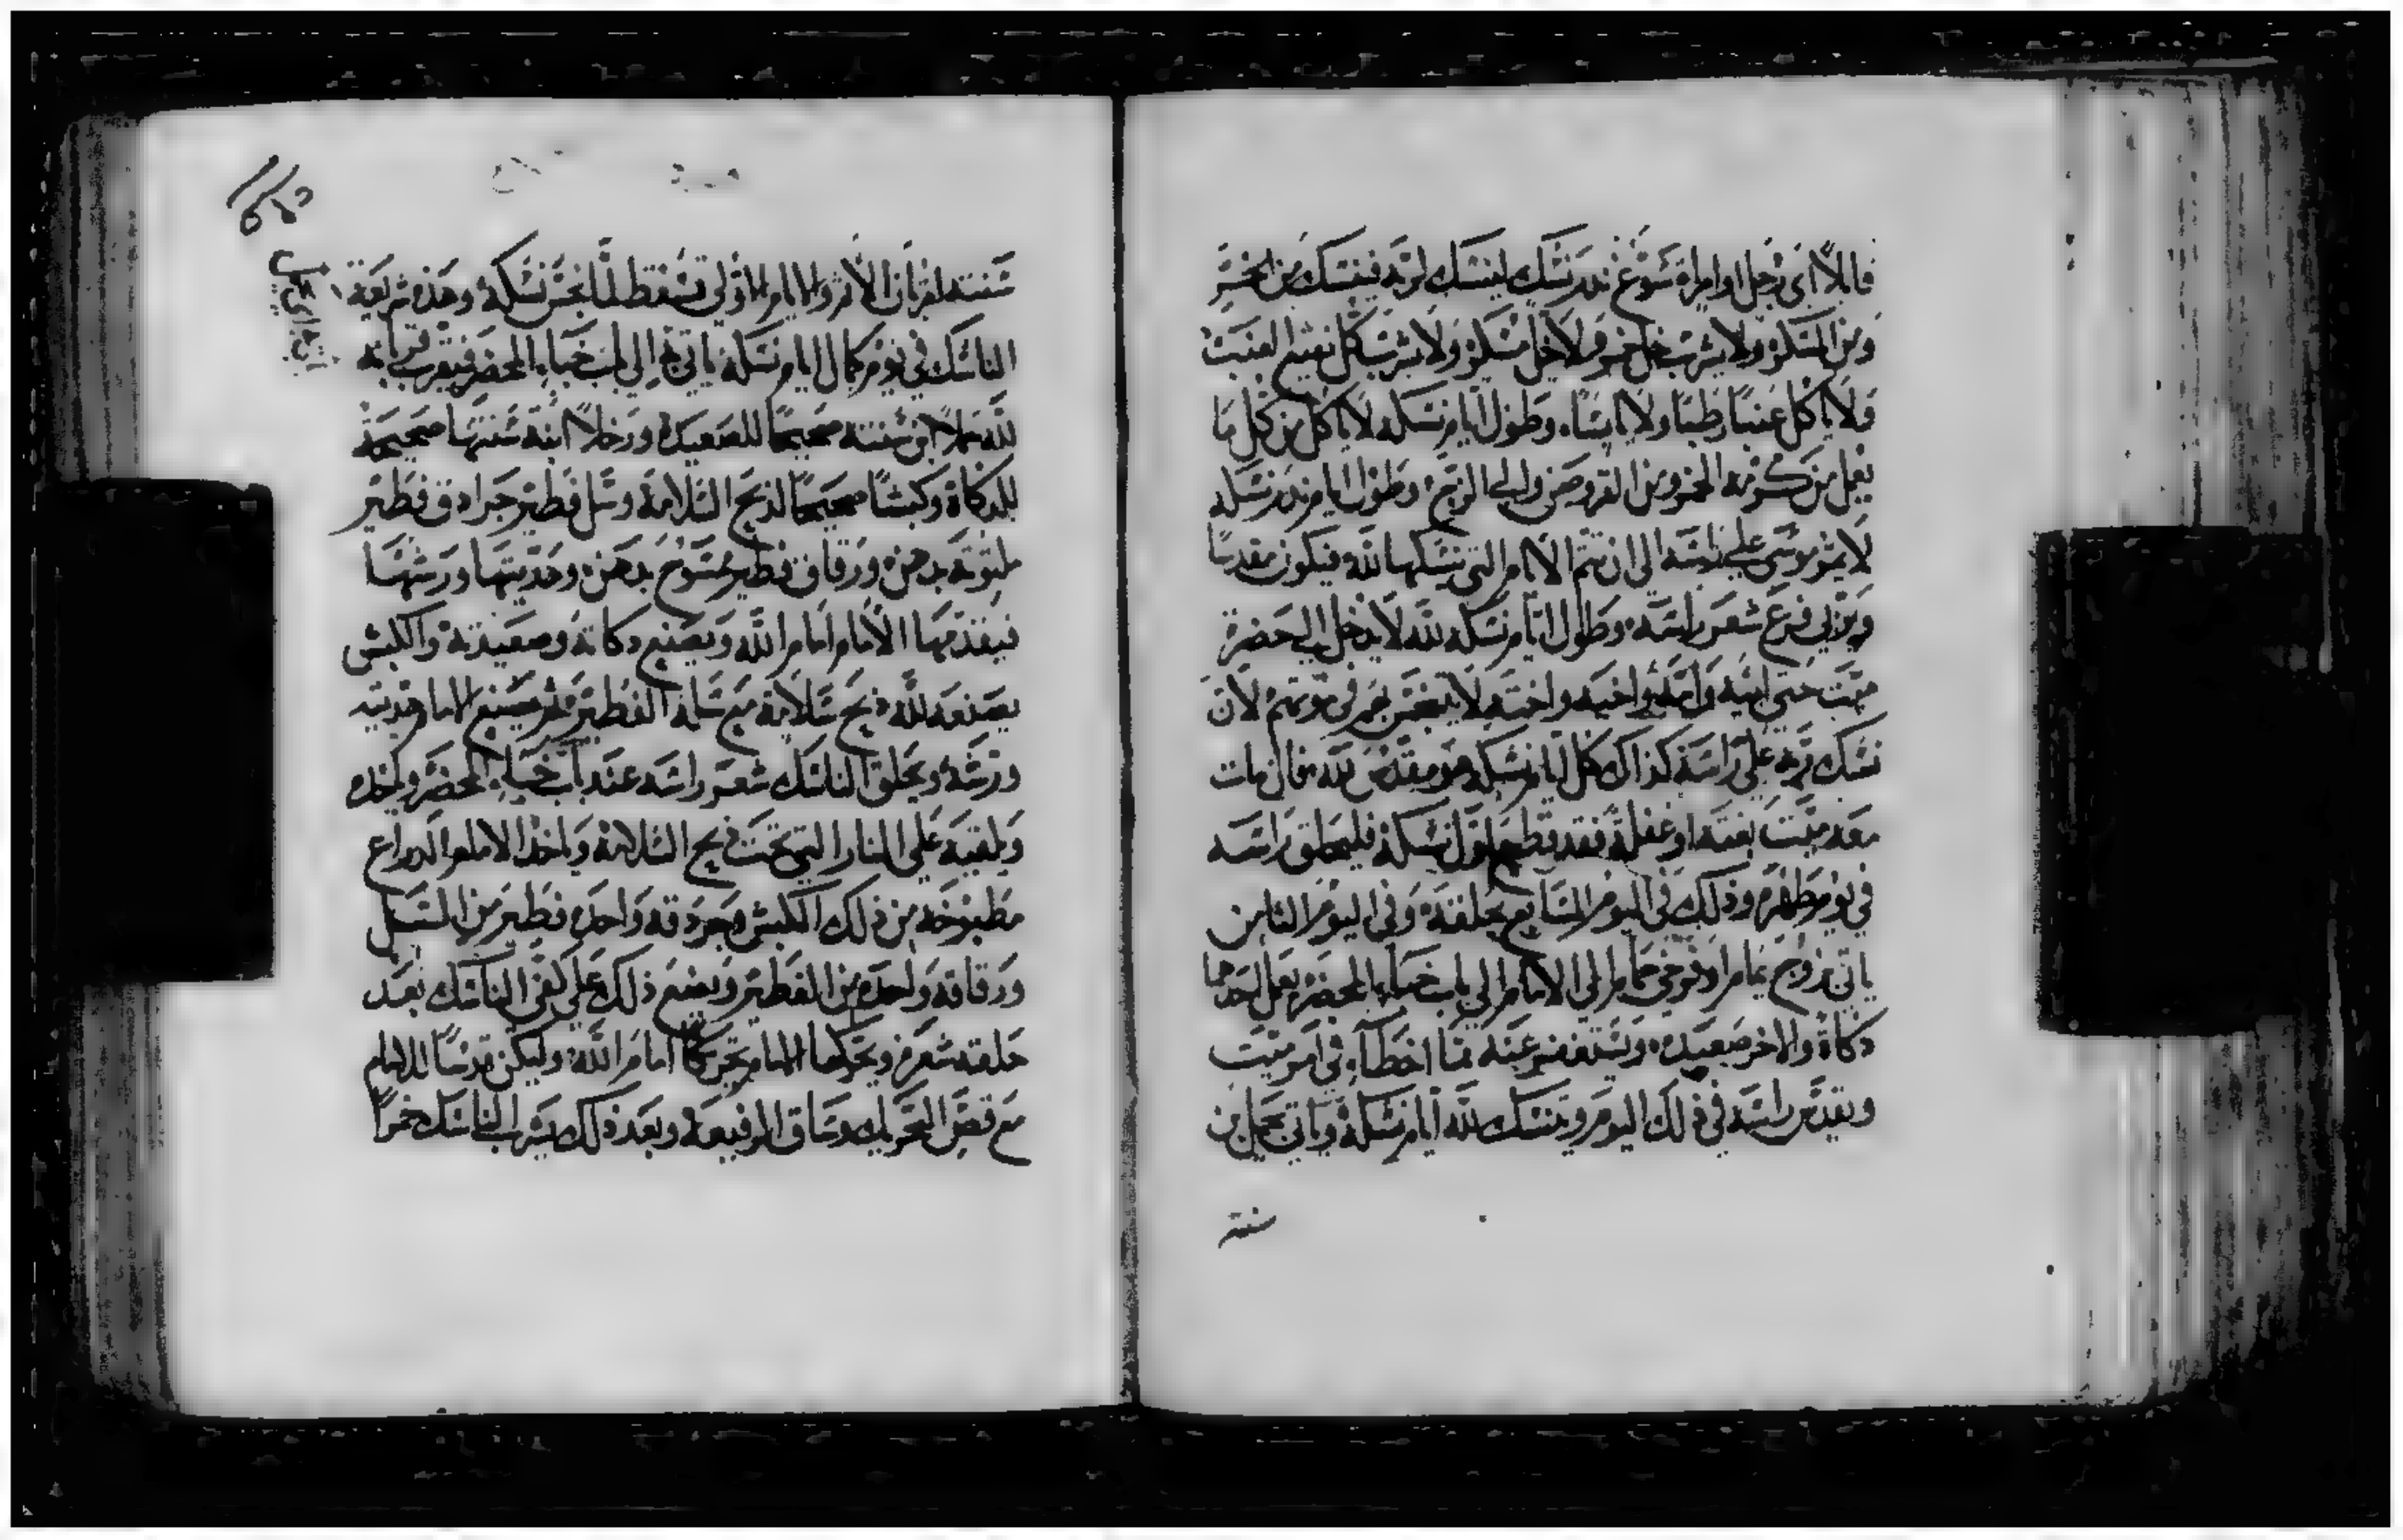 قايلا اى رجل او امراة سوغ نذر نسك لينسك لربه فينسك من الخمر
ومن المسكر ولا يشرب خل خمر ولا خل مسكر ولا يشرب كل نقيع العنب
ولا ياكل عنبا رطبا ولا يابسا وطول ايام نسكه لا ياكل من كل ما
يعمل من كرمة الخمر ومن القروصنى والى الزج وطول ايام نذر نسكه
لا يمر موسى على راسه الى ان تتم الايام التى نسكها لله فيكون مقدسا
ويربى فرع شعر راسه وطول ايام نسكه لله لا يدخل الى حضرة
ميت حتى ابيه وامه واخيه واخته ولا يتنجس بهم فى موتهم لان
نسك ربه على راسه كذاك كل ايام نسكه هو مقدس لله فان مات
معه ميت بغته او غفلة فقد قطع اول نسكه فليحلق راسه
فى يوم طهره وذلك فى اليوم السابع يحلقه وفى اليوم الثامن
ياتى بزوج يمام او فرخى حمام الى الامام الى باب خباء المحضر يعمل احدهما
دكاة والاخر صعيده ويستغفر عنه مما اخطاء فى امر ميت
ويقدس راسه فى ذلك اليوم ويتنسك لله ايام نسكه وياتى بحمل بن
سنته
سنته لقربان الاثم والايام الاولى تسقط لما نجس نسكه وهذه شريعة
الناسك فى يوم كمال ايام نسكه ياتى به الى باب خباء المحضر فيقرب قربانه
لله حملا ابن سنته صحيحا للصعيدة ورخلا ابنة سنتها صحيحة
للدكاة وكبشا صحيحا لذبح السلامة وسل فطير جرادق فطير
ملتوتة بدهن ورقاق فطير ممسوح بدهن وهديتها ورشها
فيقدمها الامام امام الله ويصنع دكاته وصعيدته والكبش
يصنعه لله ذبح سلامة مع سلة الفطير ثم يصنع الامام هديته
ورشه ويحلق الناسك شعر راسه عند باب خباء المحضر وياخده
ويلقيه على النار التى تحت ذبح السلامة وياخذ الامام الدراع
مطبوخه من ذلك الكبش وجردقه واحده فطير من السل
ورقاقه واحده من الفطير ويضع ذلك على كفى الناسك بعد
حلقه شعره ويحركها الامام تحريكا امام الله وليكن قدسا للامام
مع قص التحريك وساق الرفيعه وبعد ذلك يشرب الناسك خمرا